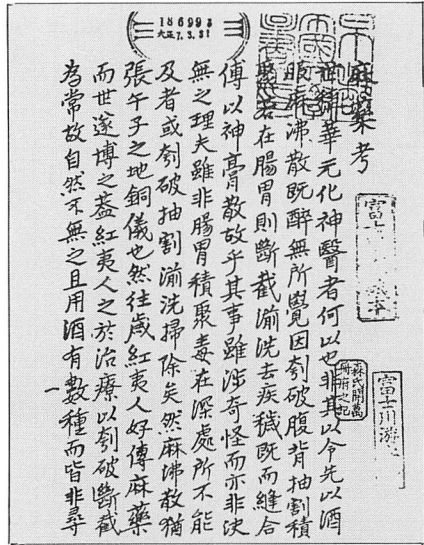 186993
大正7.3.31
麻藥考
世稱華元化神醫者何以也非其以令先以酒
服麻沸散既醉無所覺因刳破腹背抽割積
聚若在腸胃則斷截湔洗去疾穢既而縫合
傅以神膏散故乎其事雖涉奇怪而亦非決
無之理夫雖非腸胃積聚毒在深處所不能
及者或刳破抽割湔洗掃除矣然麻沸散猶
張午子之地銅儀也然往歲紅夷人好傳麻藥
而世遂博之蓋紅夷人之於治療以刳破斷截
為常故自然不無之且用酒有數種而皆非尋
富士川
本
森氏開萬
冊府之記
富士川游
一